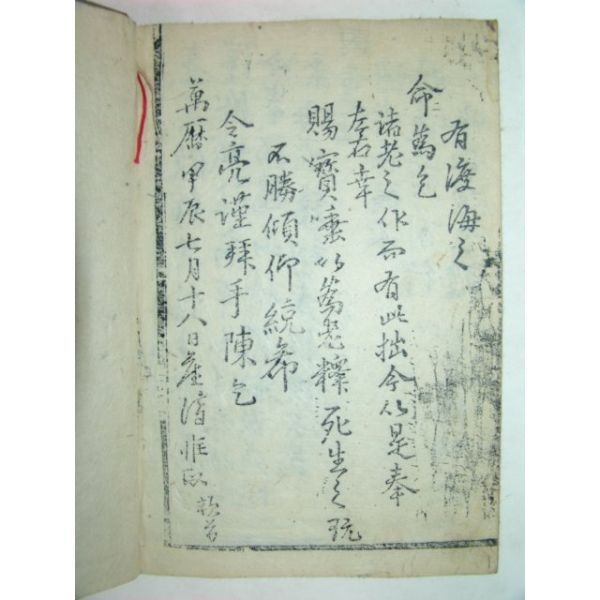 有渡海之
命焉乞
諸老之作而有此拙今以是奉
左右幸
賜寶唾以爲老釋死生之玩
不勝傾仰統希
令亮謹拜手陳乞
萬曆甲辰七月十八日